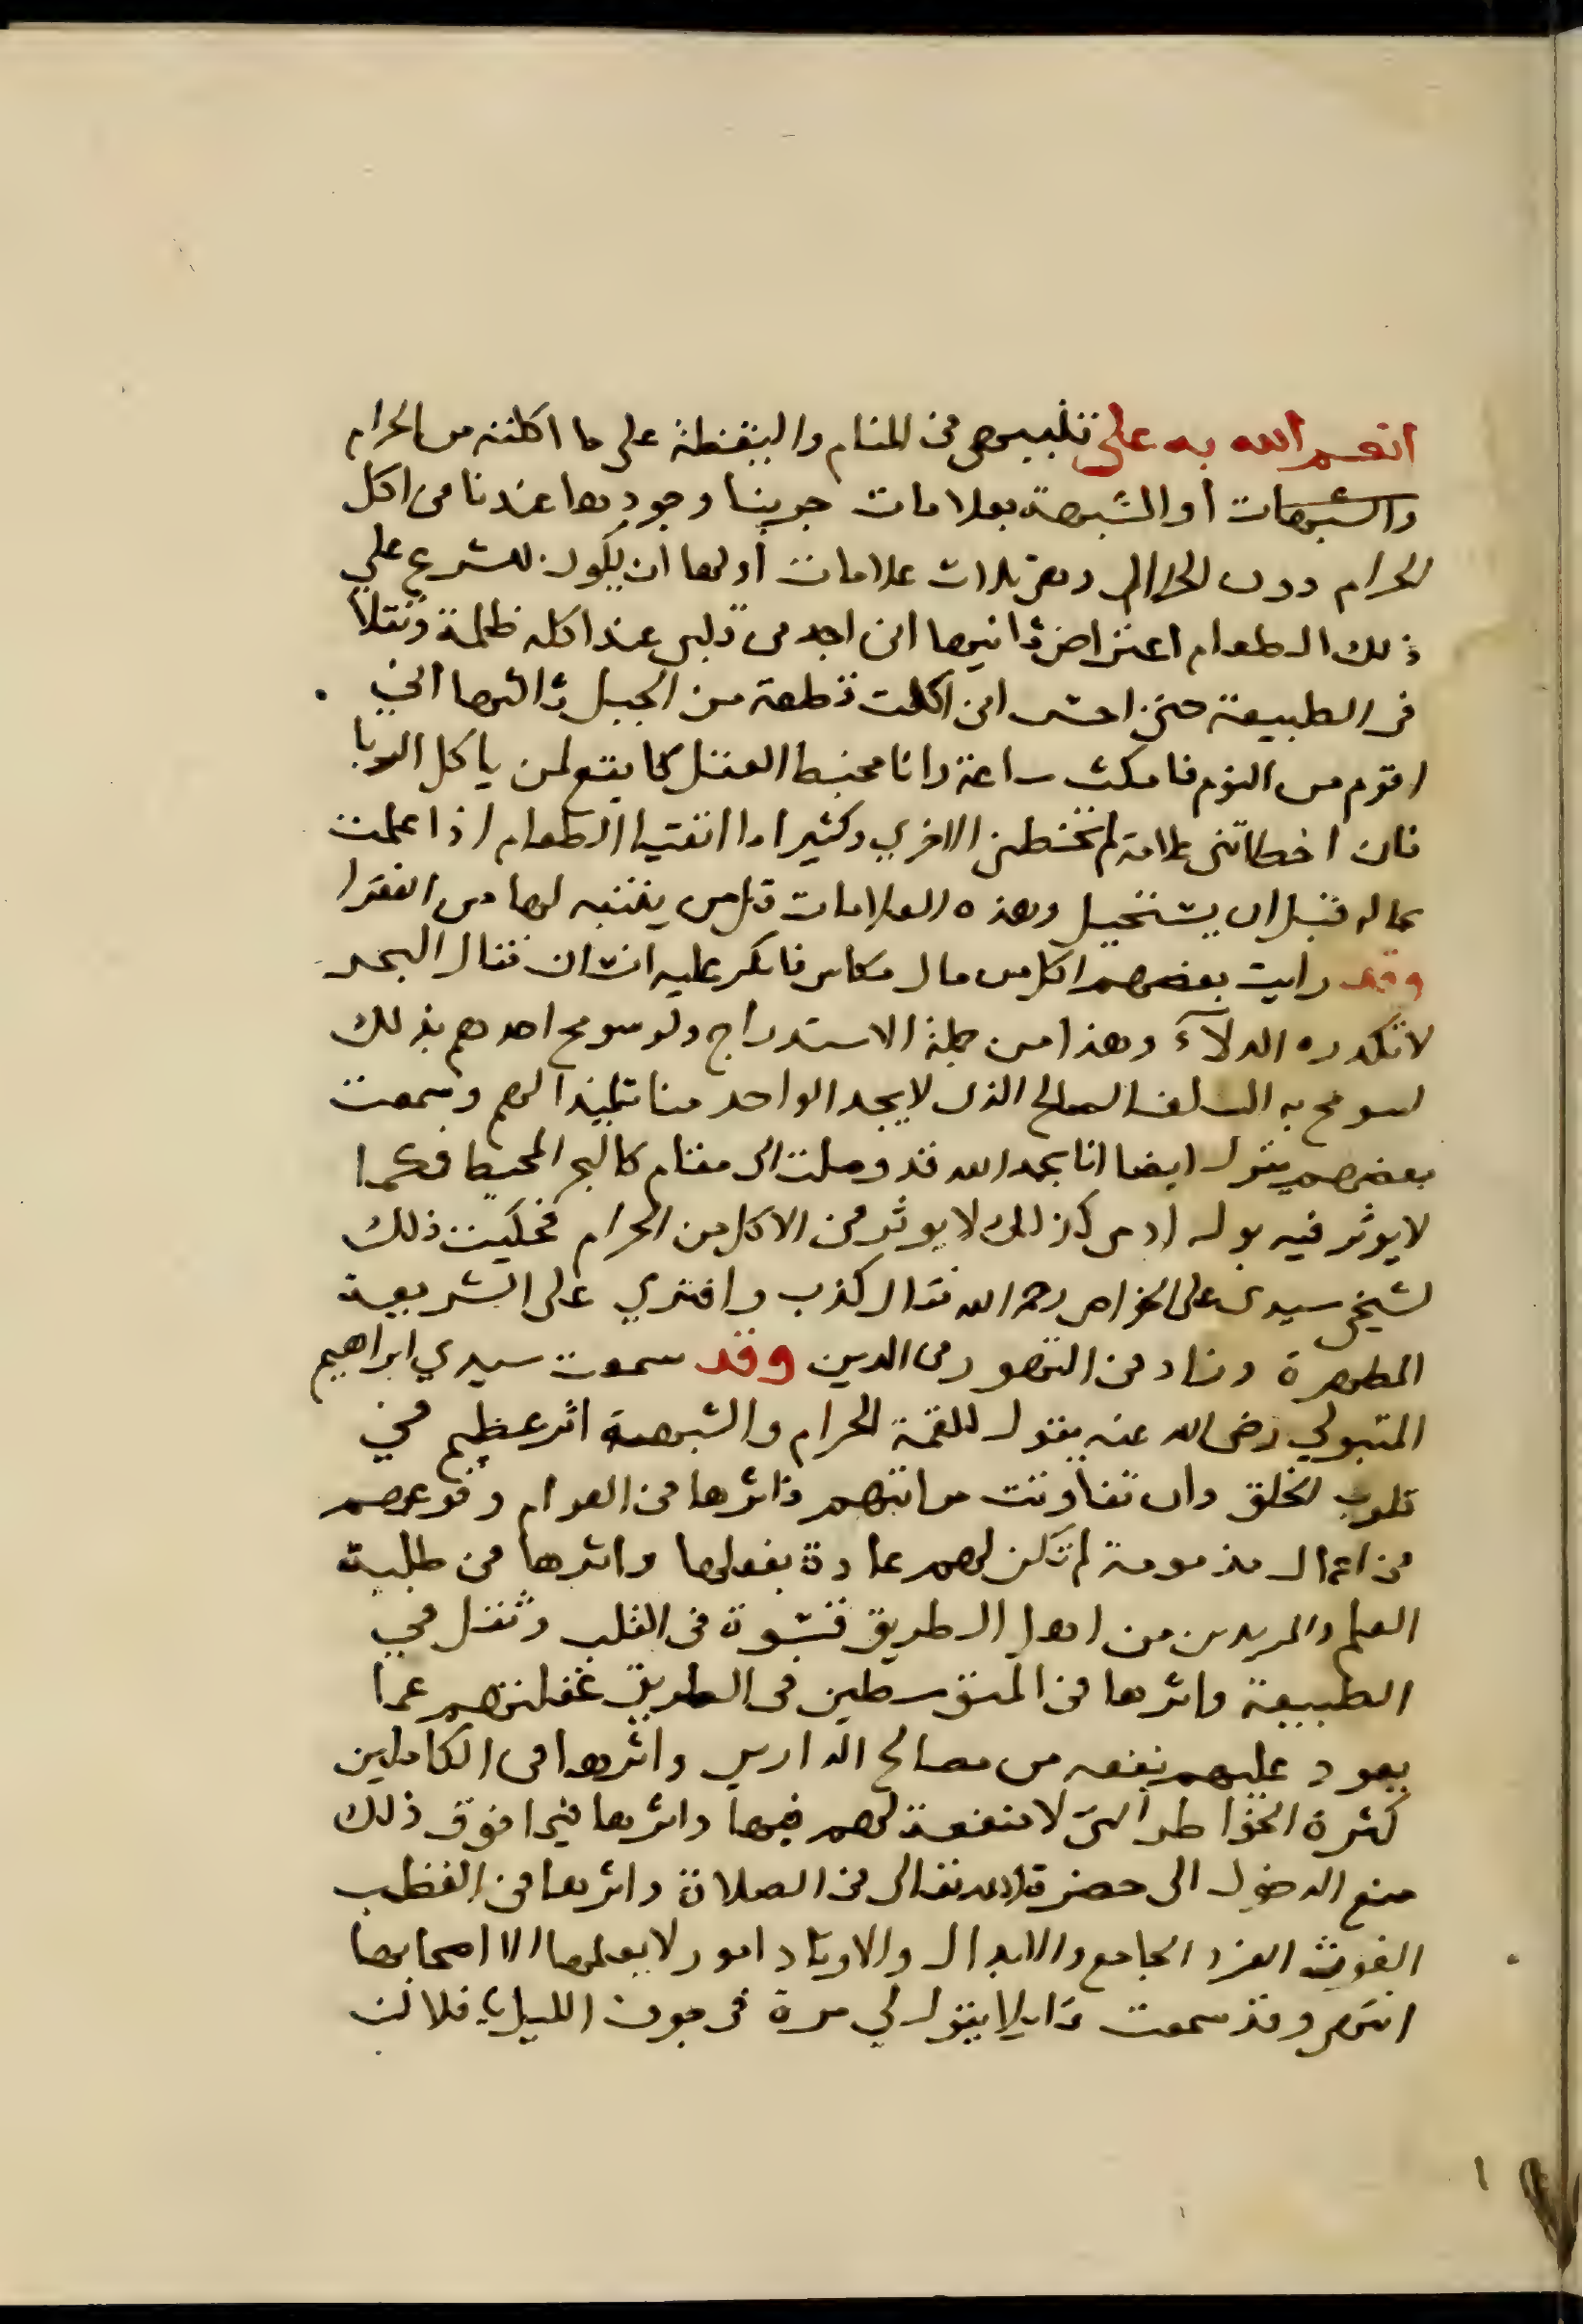 انعم الله به علي تنبيهي في المنام واليقظة على ما اكلته من الحرام
والشبهات او الشبهة بعلامات جربنا وجودها عندنا من اكل
الحرام دون الحلال وهي ثلاث علامات أولها أن يكون للشرع علي
ذلك الطعام اعتراض ثانيها اني اجد في قلبي عند اكله ظلمة وثقلا
في الطبيعة حتى احس اني اكلت قطعة من الجبل ثالثها اني
اقوم من النوم فامكث ساعة وانا مخبط العقل كما يقع لمن ياكل الربا
فان اخطاتني علامة لم تخطني الاخري وكثيرا ما اتقيا الطعام اذا علمت
بحاله قبل ان يستحيل وهذه العلامات قل من يتنبه لها من الفقرا
وقد رايت بعضهم اكل من مال مكاس فانكر عليه انسان فقال البحر
لا تكدره الدلاء وهذا من جملة الاستدراج ولو سومح احدهم بذلك
لسومح به السلف الصالح الذي لا يجد الواحد منا تلميذا لهم وسمعت
بعضهم يقول ايضا انا بحمد الله قد وصلت الى مقام كالبحر المحيط فكما
لا يوثر فيه بول ادمي كذلك لا يوثر في الاكل من الحرام فحكيت ذلك
لشيخي سيدي على الخواص رحمه الله فقال كذب وافتري على الشريعة
المطهرة وزاد في التهور في الدين وقد سمعت سيدي ابراهيم
المتبولي رضي الله عنه يقول للقمة الحرام والشبهة اثر عظيم في
قلوب الخلق وان تفاوتت مراتبهم فاثرها في العوام وقوعهم
في اعمال مذمومة لم تكن لهم عادة بفعلها واثرها في طلبة
العلم والمريدين من اهل الطريق قسوة في القلب وثقل في
الطبيعة واثرها في المتوسطين في الطريق غفلتهم عما
يعود عليهم نفعه من مصالح الدارين واثرها في الكاملين
كثرة الخواطر التي لا منفعة لهم فيها واثرها فيما فوق ذلك
منع الدخول الى حضرة الله تعالى في الصلاة واثرها في القطب
الغوث الفرد الجامع والابدال والاوتاد امور لا يعلمها الا اصحابها
انتهى وقد سمعت قايلا يقول لي مرة في جوف الليل يا فلان